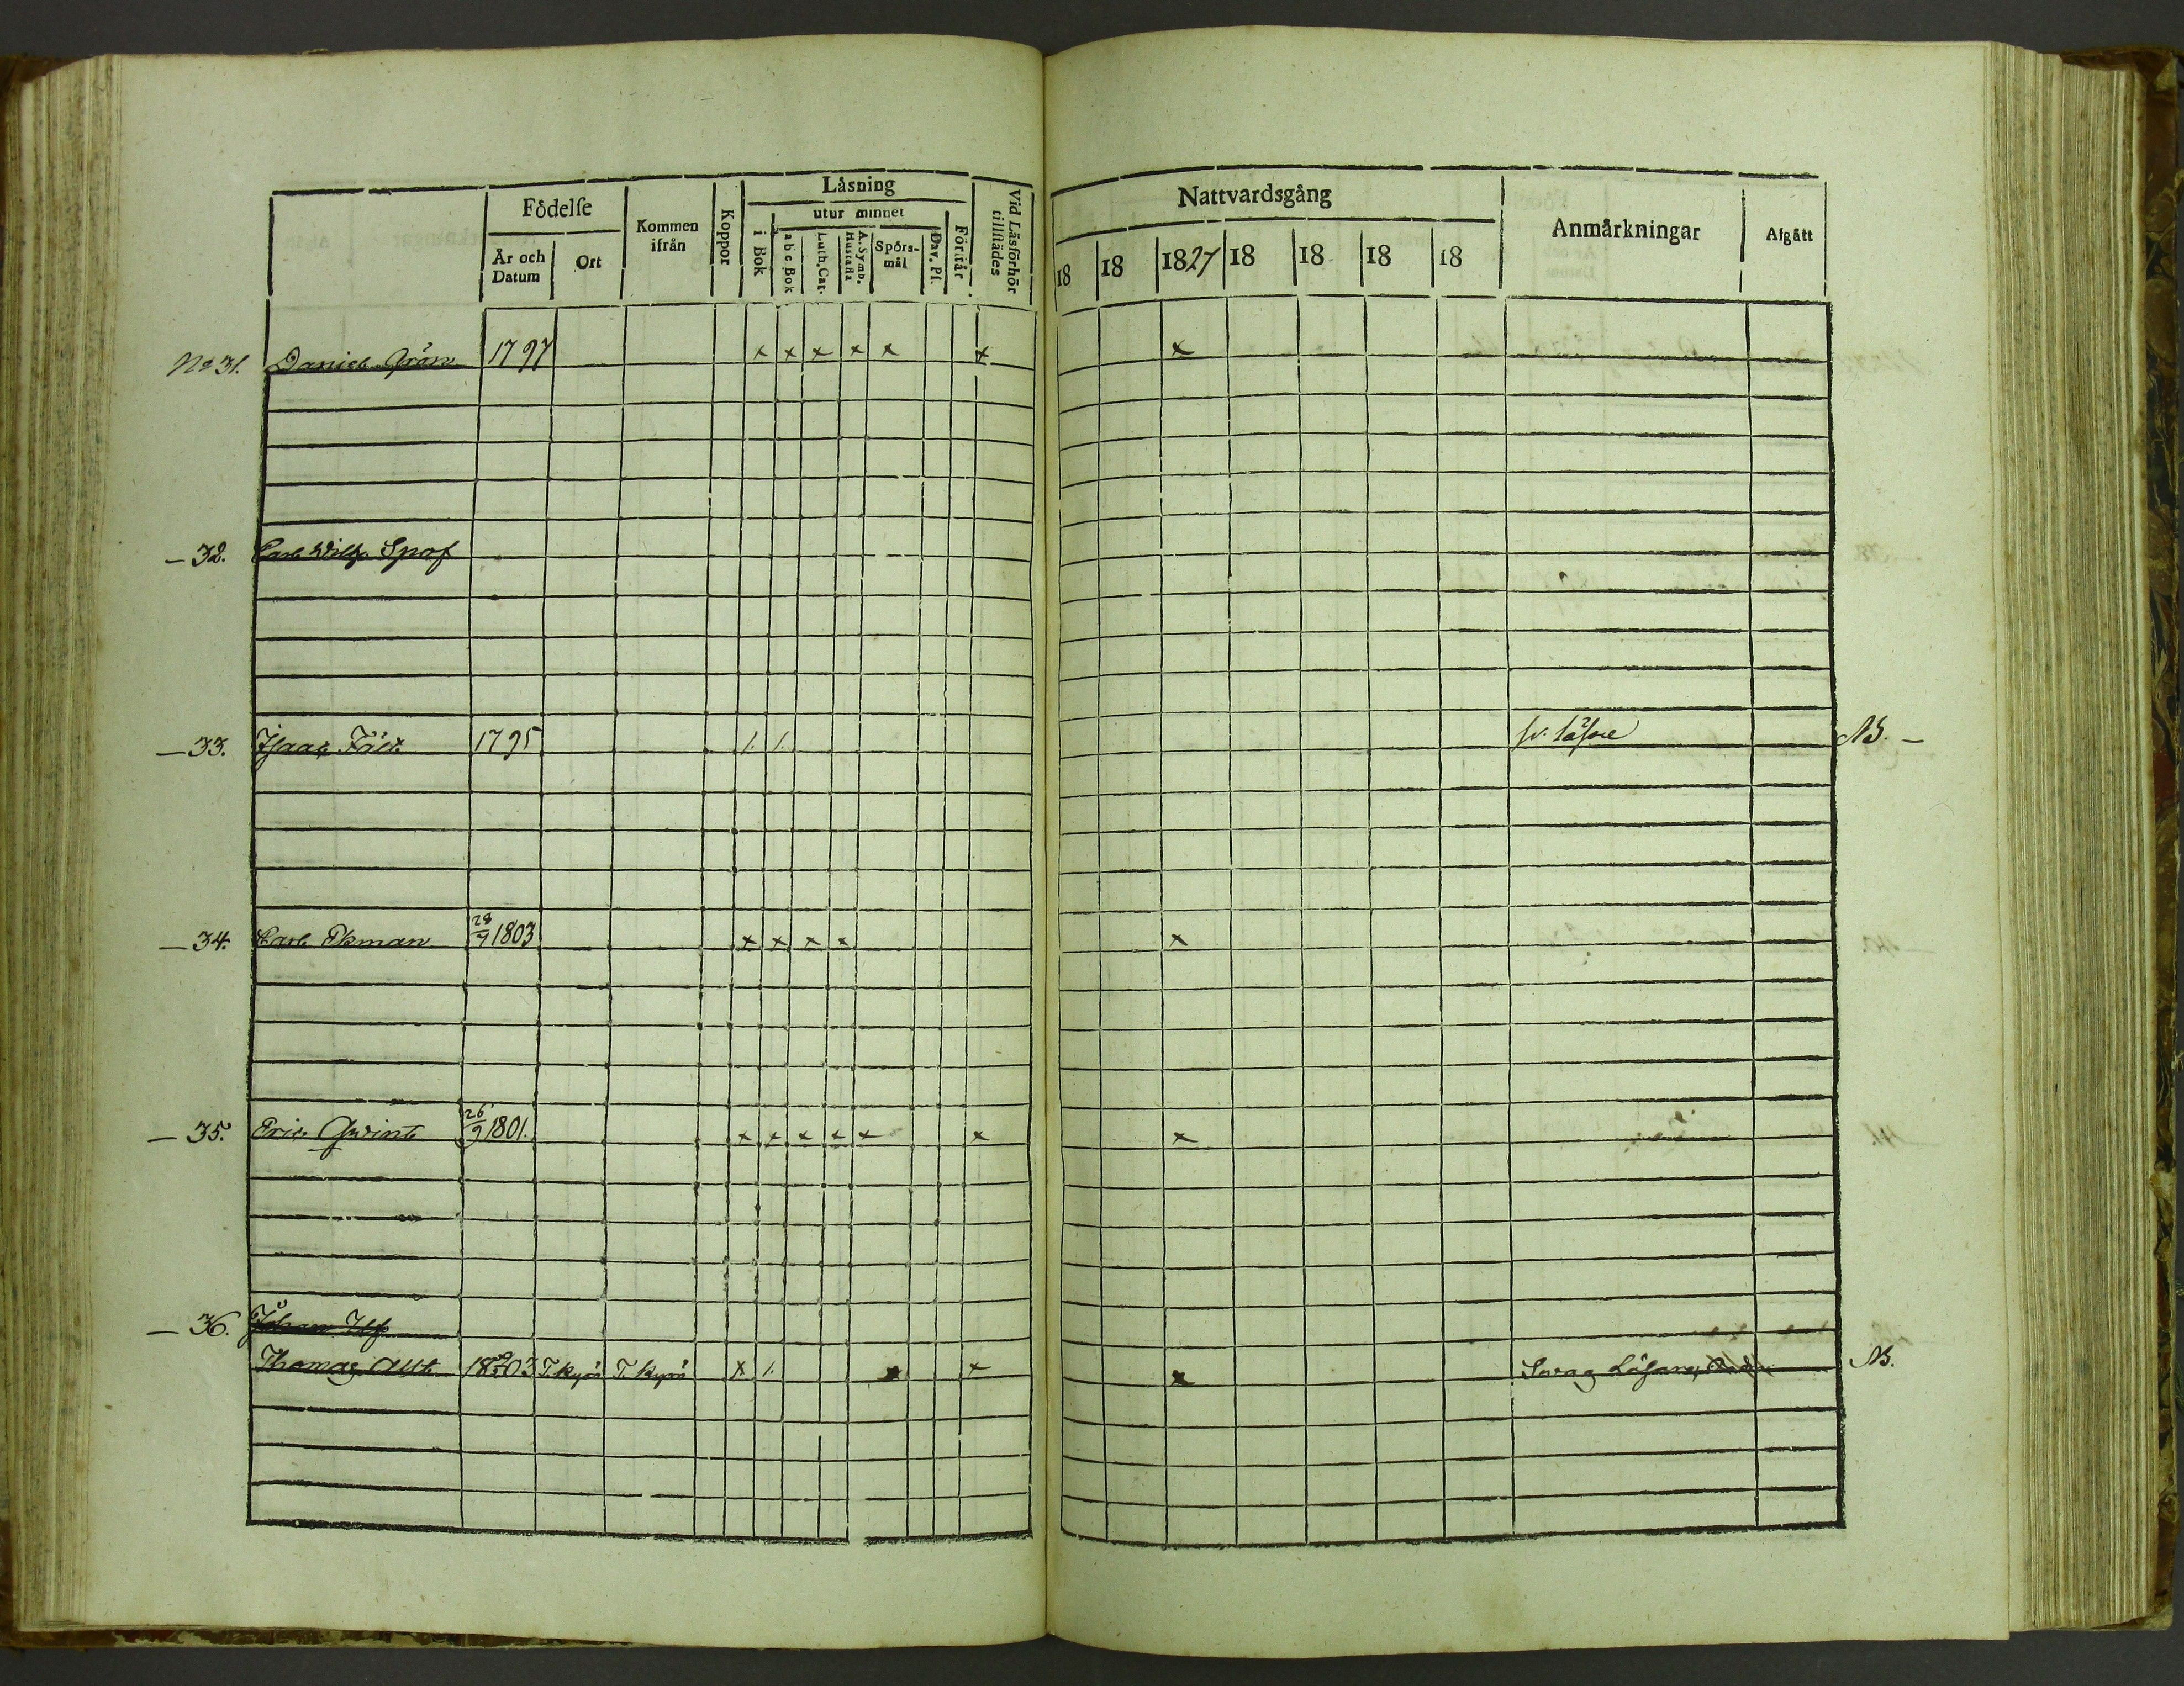 Födelse
År och Datum
Ort
Kommen ifrån
Koppor
Läsning
i Bok
utur minnet
a b c Bok
Luth. Cat.
A. Symb. Hustafla
Spörsmål
Dav. Ps.
Förstår
Vid Läsförhör tillstädes
Nattvardsgång
18 18 1827 18 18 18 18
Anmärkningar
Afgått
No 31. Daniel Grön 1797 x x x x x x x
— 32. Carl Wilh. Spof
— 33. Isaac Fält 1795 /. /. sv. läsare NB. —
— 34. Carl Ekman 28/9 1803 x x x x x
— 35. Eric Qwint 26/9 1801. x x x x x x x
— 36. Johan Ulf
Thomas Allt 1803 T.kyrö T.kyrö x /. x x x Swag Läsare, NB.